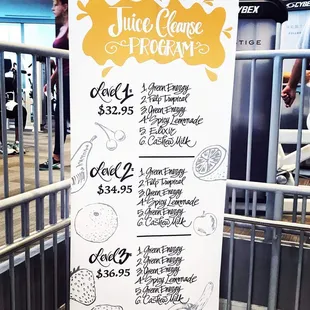 Juice Cleanse
PROGRAM
Level 1:
$32.95
1. Green Energy
2. Pulp Tropical
3. Green Energy
4. Spicy Lemonade
5.
6. Cashew Milk
Level 2:
$34.95
1. Green Energy
2. Pulp Tropical
3. Green Energy
4. Spicy Lemonade
5. Green Energy
6. Cashew Milk
Level 3:
$36.95
1. Green Energy
2. Green Energy
3. Green Energy
4. Spicy Lemonade
5. Green Energy
6. Cashew Milk
CYBEX